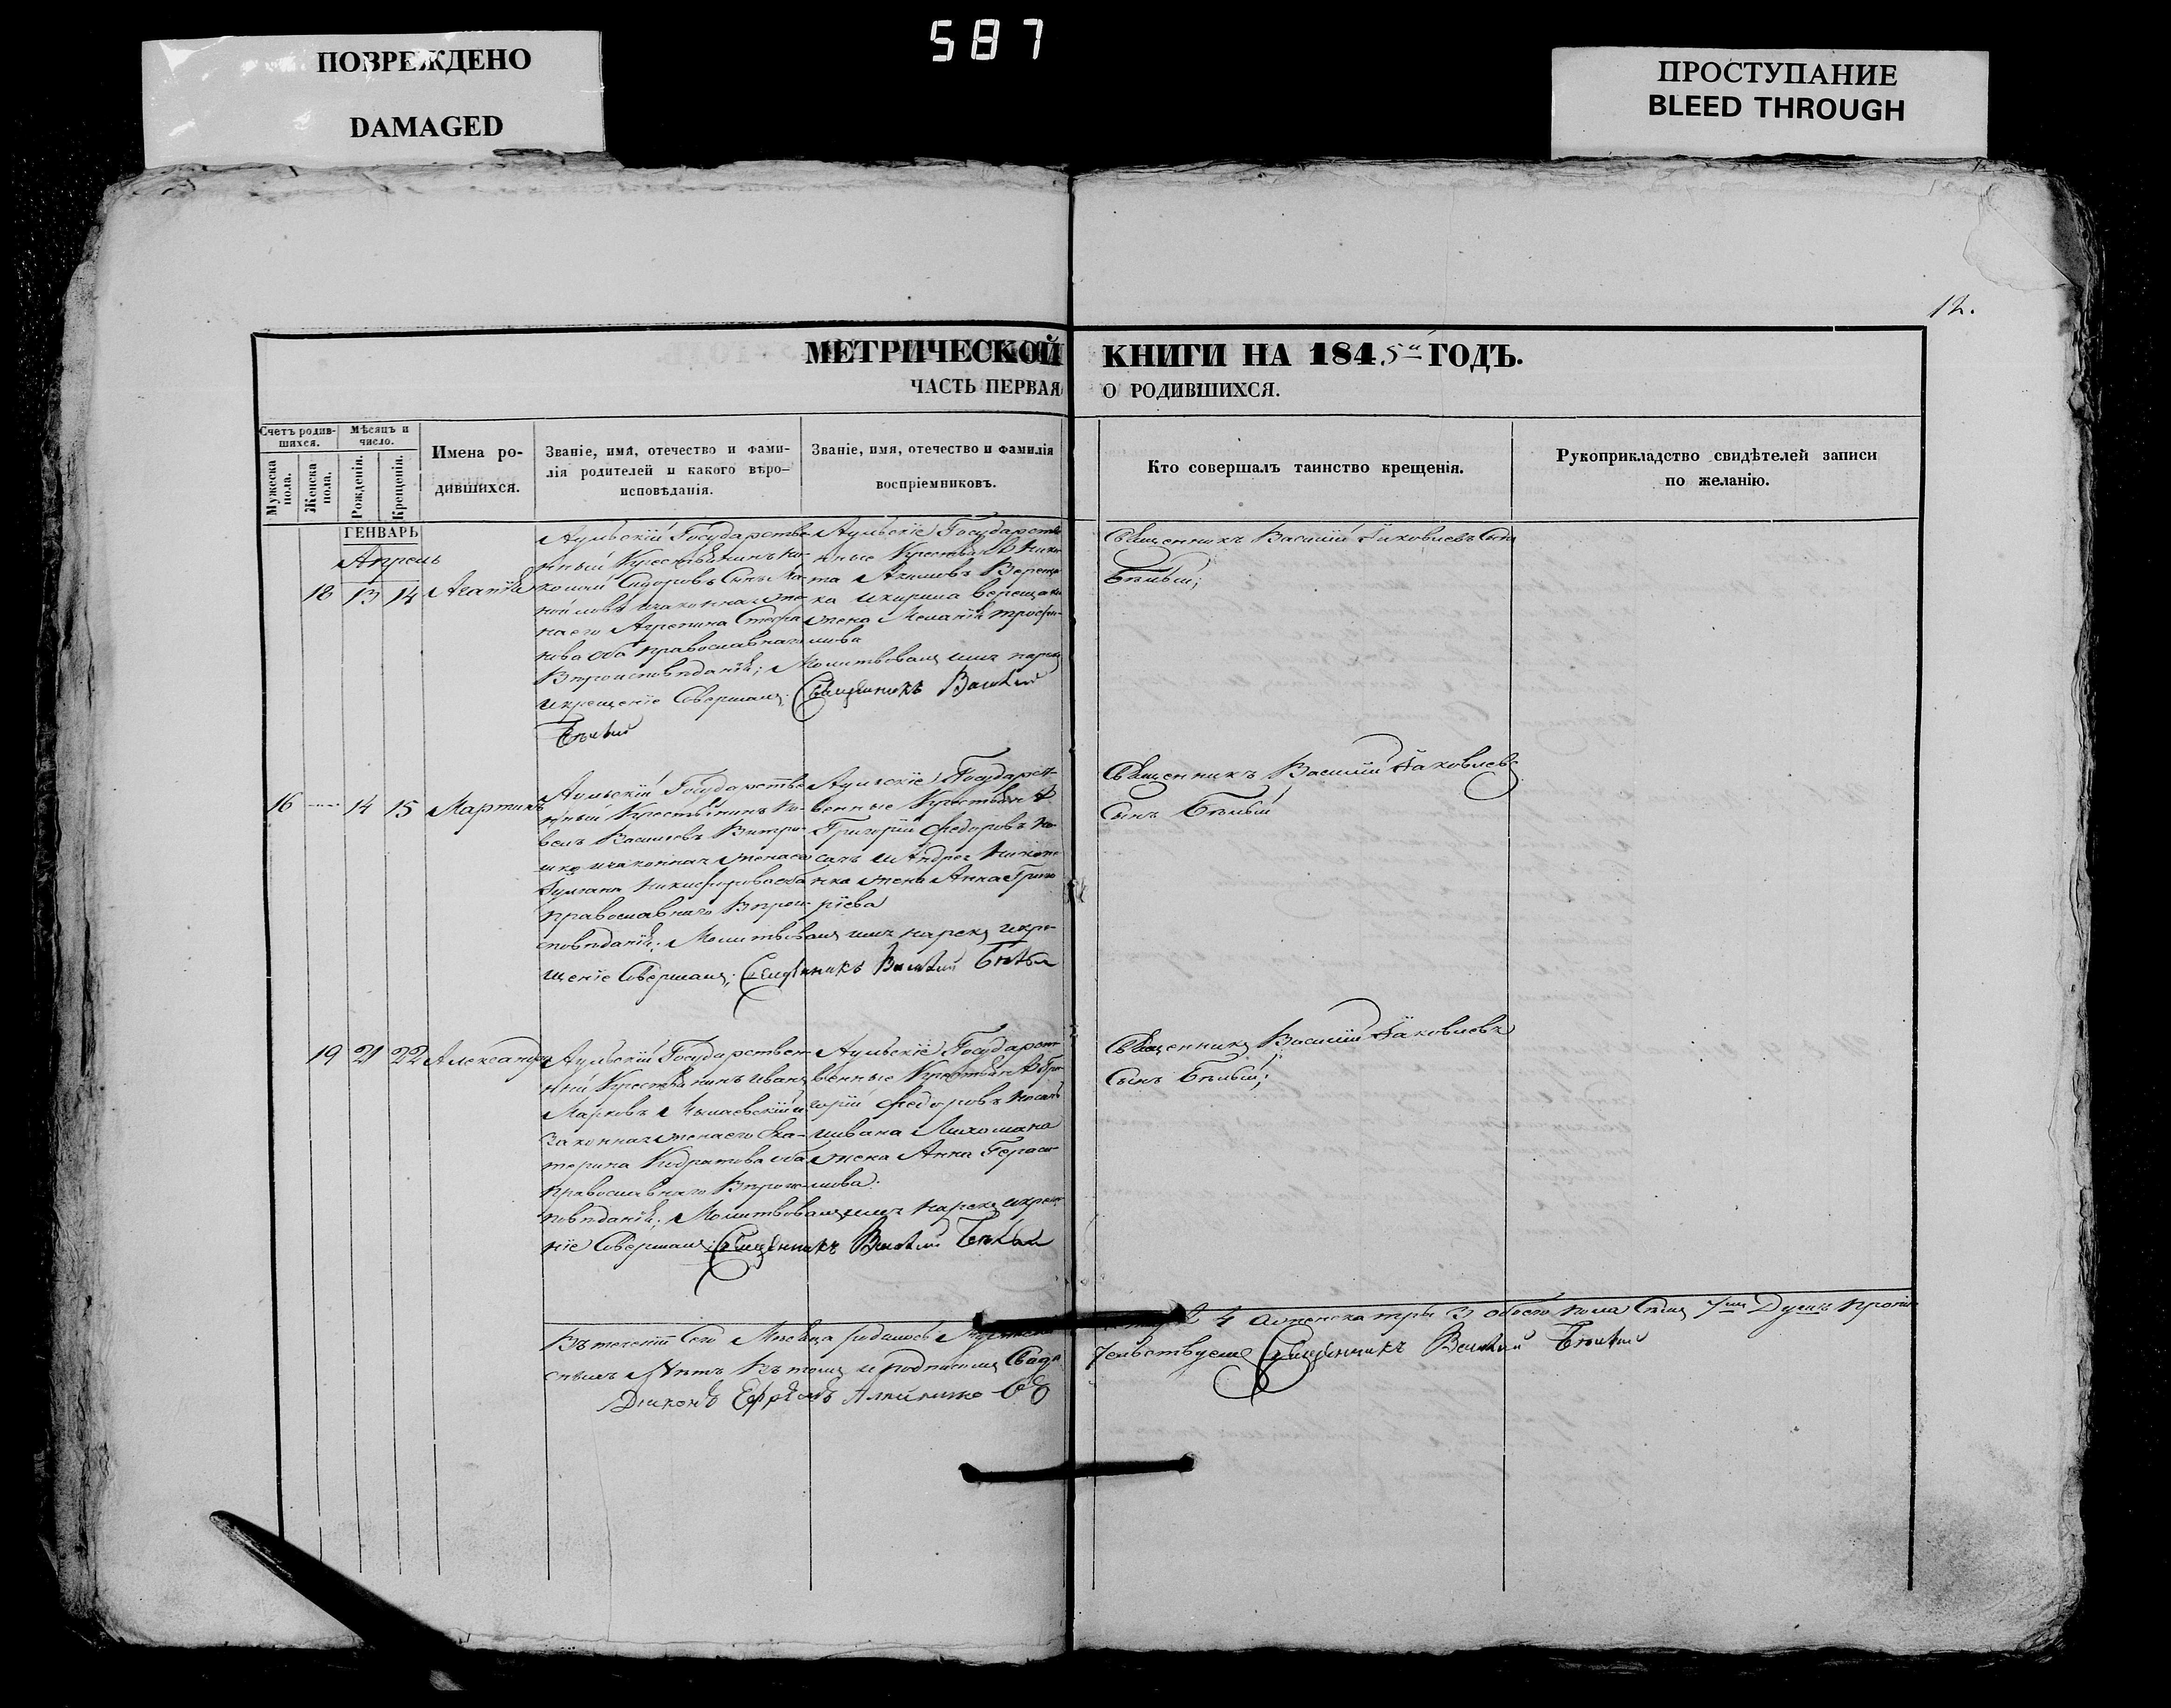 587
ПОВРЕЖДЕНО
DAMAGED
ПРОСТУПАНИЕ
BLEED THROUGH
12.
МЕТРИЧЕСКОЙ КНИГИ НА 1845й ГОДЪ.
ЧАСТЬ ПЕРВАЯ О РОДИВШИХСЯ.
Счетъ родив-
шихся.
Мужеска
пола.
Женска
пола.
Мѣсяцъ и
число.
Рожденія.
Крещенія.
Имена ро-
дившихся.
Званіе, имя, отечество и фами-
лія родителей и какого вѣро-
исповѣданія.
Званіе, имя, отечество и фамилія
воспріемниковъ.
Кто совершалъ таинство крещенія.
Рукоприкладство свидѣтелей записи
по желанію.
ГЕНВАРЬ
Апрель
18 13 14 Агапія
Аульскій Государстве
нный Крестьянинъ Ни-
Сидоровъ Сынъ
законная же-
на его Агрепина Стефа
нова оба православнаго
Вѣроисповѣданія; Молитвовалъ имя нареклъ
и крещеніе Совершалъ; Священникъ Василий
Бѣлый
Аульскіе Государстве
нные Крестьяне Ники
та Акимовъ Вереща
ка и Кирила Верещаки
жена Меланія Трофи-
мова
Священникъ Василий Яковлевъ Сынъ
Бѣлый;
16 14 15 Мартинъ
Аульскій Государстве
нный Крестьянинъ Па-
велъ Василевъ
и законная жена его
Никифорова оба
православнаго Вѣрои-
сповѣданія; Молитвовалъ имя нареклъ и кре-
щеніе Совершалъ; Священникъ Василий Бѣлый
Аульскіе Государст-
венные Крестьяне
Григорій Федоровъ Но-
сачъ и Андрея
жена Анна Григо
ріева
Священникъ Василий Яковлевъ
Сынъ Бѣлый
19 21 22 Александра
Аульскій Государствен-
ный Крестьянинъ Иванъ
Марковъ и
Законная жена его Ека-
терина Кодратова оба
православнаго Вѣроис-
повѣданія; Молитвовалъ имя нареклъ и креще-
ніе Совершалъ; Священникъ Василий Бѣлый
Аульскіе Государст-
венные Крестьяне Гри-
горій Федоровъ Носачъ
и Ивана
жена Анна Гераси-
мова.
Священникъ Василий Яковлевъ
Сынъ Бѣлый;
Въ теченіи Сего Мѣсяца родилось Мужеска 4 а женска три 3 обоего пола Семь 7мь Душъ
Священникъ Василий Бѣлый
Дияконъ Ефремъ